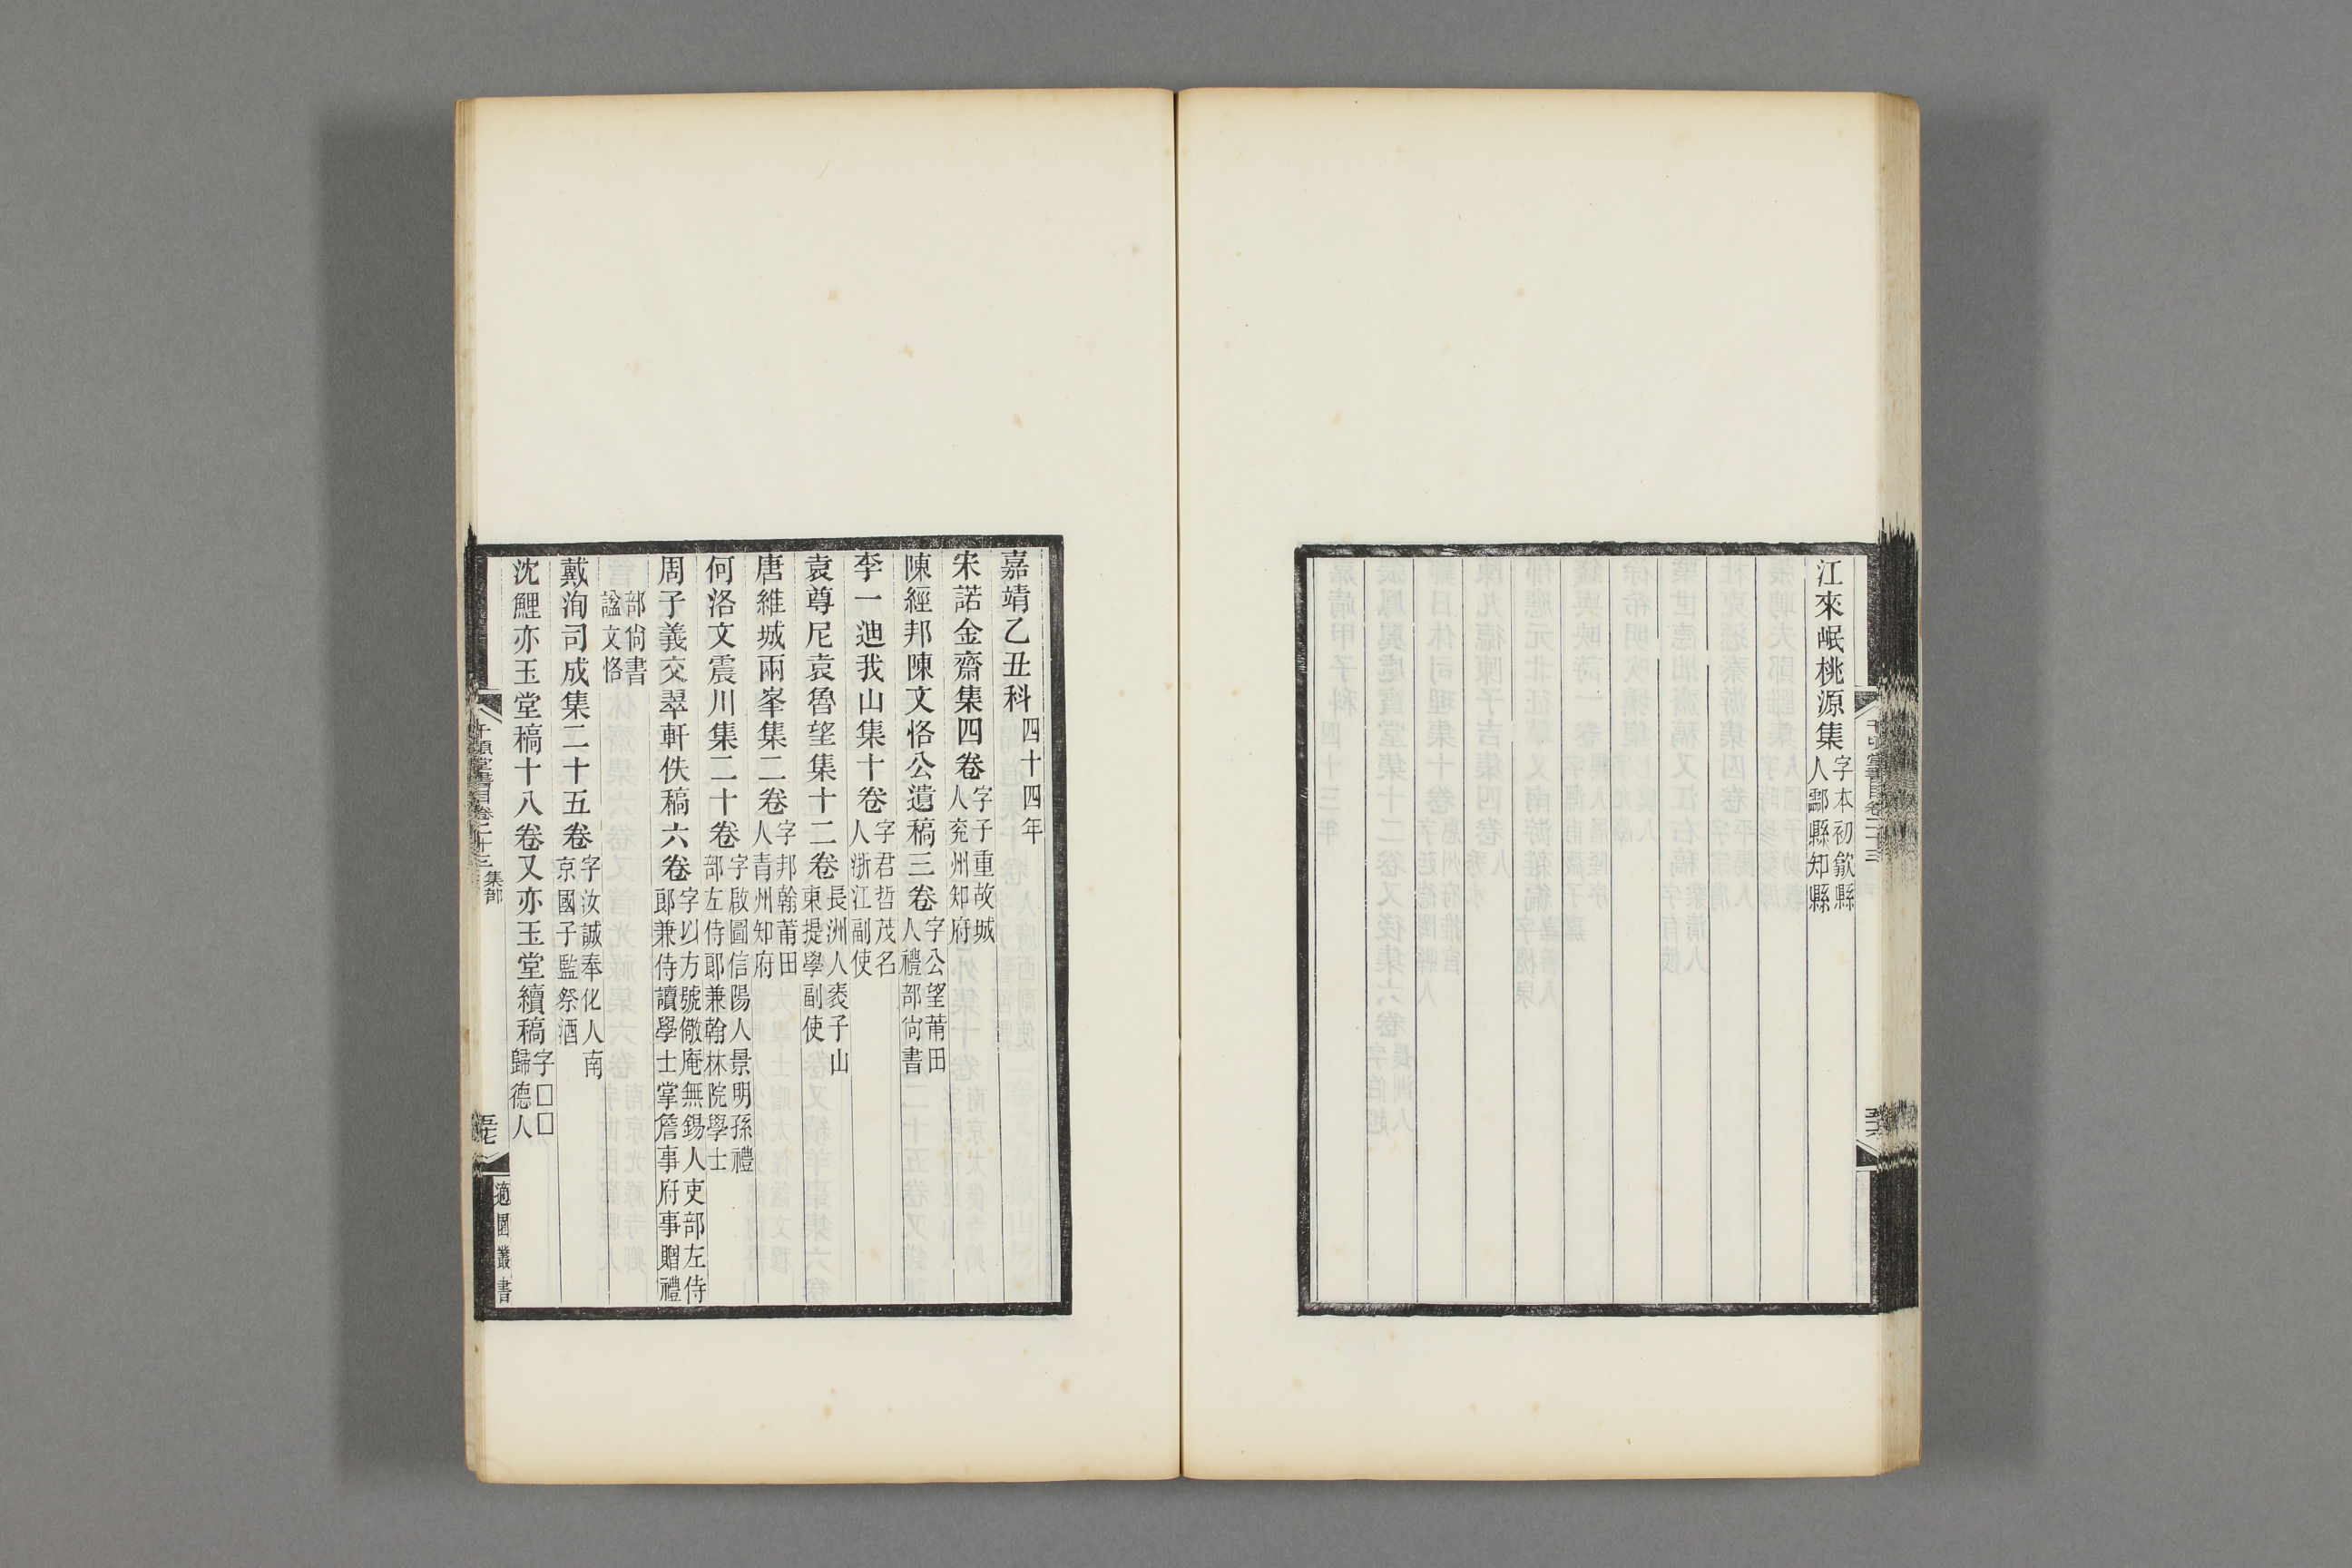 江來岷桃源集字本初歙縣人鄠縣知縣
千頃堂書目卷二十三
嘉靖乙丑科四十四年
宋諾金齋集四卷字子重故城人兖州知府
陳經邦陳文恪公遺稿三卷字公望莆田人禮部尙書
李一迪我山集十卷字君哲茂名人浙江副使
袁尊尼袁魯望集十二卷長洲人袠子山東提學副使
唐維城兩峯集二卷字邦翰莆田人青州知府
何洛文震川集二十卷字啟圖信陽人景明孫禮部左侍郞兼翰林院學士
周子義交翠軒佚稿六卷字以方號儆庵無錫人吏部左侍郞兼侍讀學士掌詹事府事贈禮
部尙書諡文恪
戴洵司成集二十五卷字汝誠奉化人南京國子監祭酒
沈鯉亦玉堂稿十八卷又亦玉堂續稿字□□歸德人
千頃堂書目卷二十三 集部
五七
適園叢書